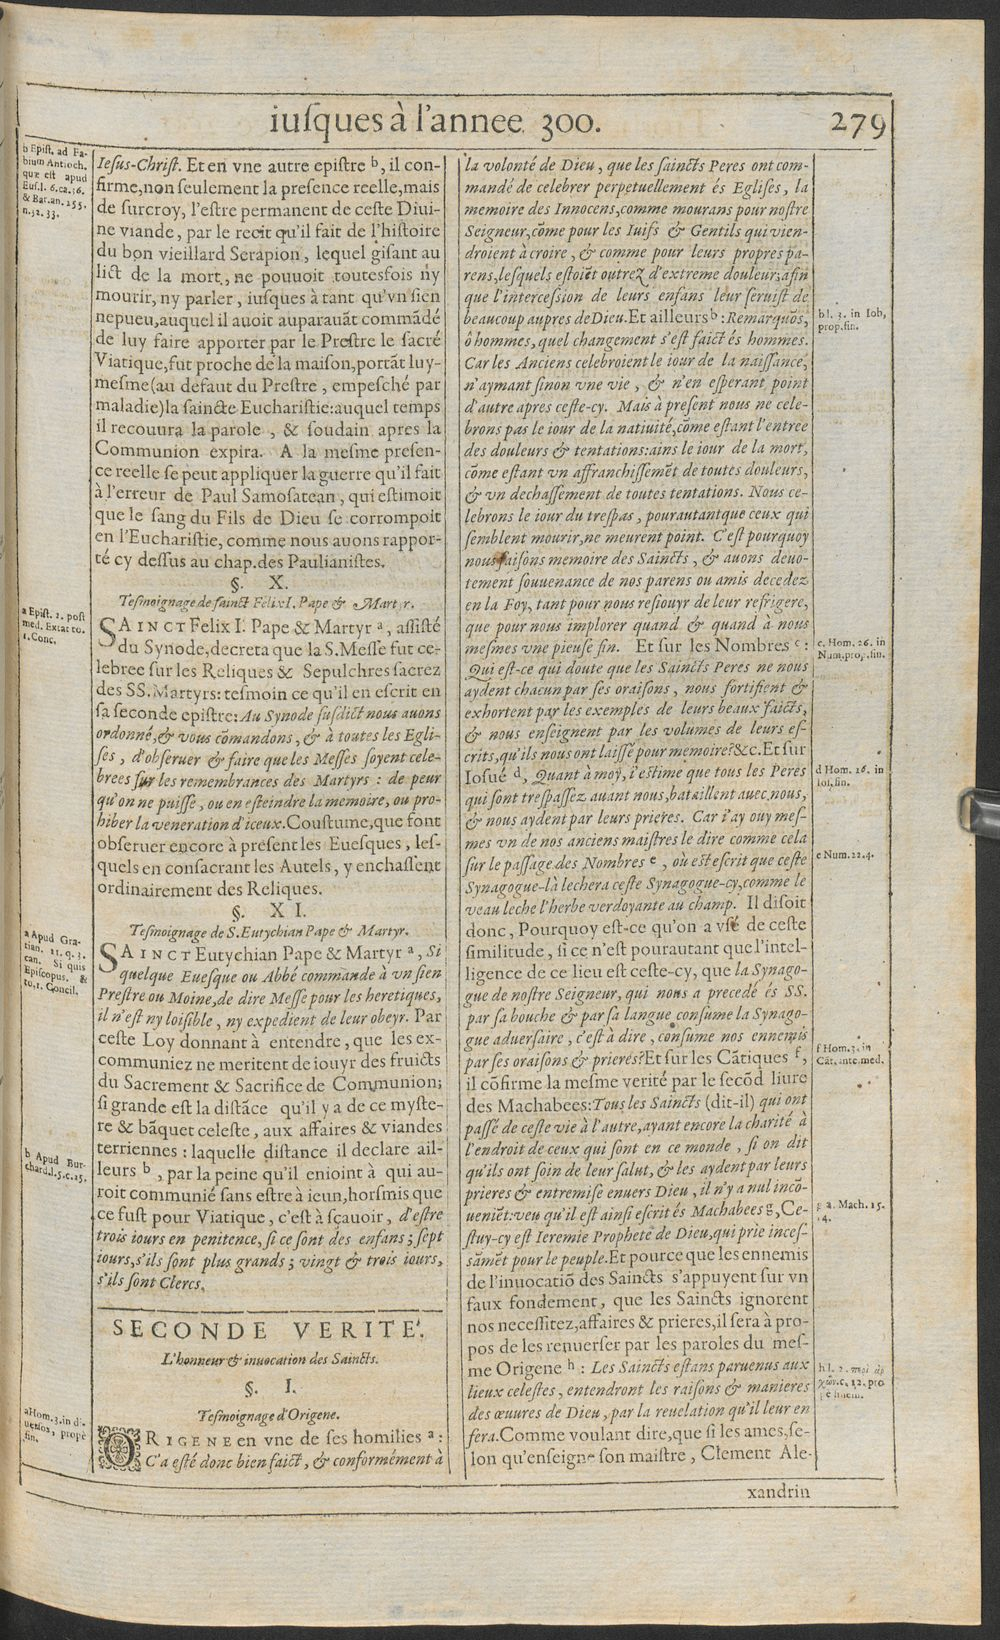 iuſques à l'annee 300.
279
b Epiſt. ad Fa-
bium Antioch.
quæ eſt apud
Euſ.l. 6.ca.36.
& Bar.an.255.
n.32.33.
Ieſus-Chriſt. Et en vne autre epiſtre b, il con-
firme,non ſeulement la preſence reelle,mais
de ſurcroy, l'eſtre permanent de ceſte Diui-
ne viande, par le recit qu'il fait de l'hiſtoire
du bon vieillard Serapion, lequel giſant au
lict de la mort, ne pouuoit toutesfois ny
mourir, ny parler, iuſques à tant qu'vn ſien
nepueu,auquel il auoit auparauāt commādé
de luy faire apporter par le Preſtre le ſacré
Viatique,fut proche de la maiſon,portāt luy-
meſme(au défaut du Preſtre, empeſché par
maladie)la ſaincte Euchariſtie:auquel temps
il recouura la parole, & ſoudain apres la
Communion expira. A la meſme preſen-
ce reelle ſe peut appliquer la guerre qu'il fait
à l'erreur de Paul Samoſatean, qui eſtimoit
que le ſang du Fils de Dieu ſe corrompoit
en l'Euchariſtie, comme nous auons rappor-
té cy deſſus au chap.des Paulianiſtes.
§. X.
Teſmoignage de ſainct Felix I. Pape & Martyr.
a Epiſt. 2. poſt
med. Extat to.
1.Conc.
SAINCT Felix I. Pape & Martyr a, aſſiſté
du Synode,decreta que la S.Meſſe fut ce-
lebree ſur les Reliques & Sepulchres ſacrez
des SS.Martyrs: teſmoin ce qu'il en eſcrit en
ſa ſeconde epiſtre: Au Synode ſuſdict nous auons
ordonné,& vous cōmandons, & à toutes les Egli-
ſes, d'obſeruer & faire que les Meſſes ſoyent cele-
brees ſur les remembrances des Martyrs : de peur
qu'on ne puiſſe, ou en eſteindre la memoire, ou pro-
hiber la veneration d'iceux. Couſtume,que font
obſeruer encore à preſent les Eueſques, leſ-
quels en conſacrant les Autels, y enchaſſent
ordinairement des Reliques.
§. XI.
Teſmoignage de S.Eutychian Pape & Martyr.
a Apud Gra-
tian. 11. q. 3.
can. Si quis
Epiſcopus. &
to.1. Concil.
SAINCT Eutychian Pape & Martyr a, Si
quelque Eueſque ou Abbé commande à vn ſien
Preſtre ou Moine,de dire Meſſe pour les heretiques,
il n'eſt ny loiſible, ny expedient de leur obeyr. Par
ceſte Loy donnant à entendre, que les ex-
communiez ne meritent de iouyr des fruicts
du Sacrement & Sacrifice de Communion;
ſi grande eſt la diſtāce qu'il y a de ce myſte-
re & bāquet celeſte, aux affaires & viandes
terriennes : laquelle diſtance il declare ail-
b Apud Bur-
chard.l.5.c.25.
leurs b, par la peine qu'il enioint à qui au-
roit communié ſans eſtre à ieun,horſmis que
ce fuſt pour Viatique, c'eſt à ſçauoir, d'eſtre
trois iours en penitence, ſi ce ſont des enfans; ſept
iours,s'ils ſont plus grands; vingt & trois iours,
s'ils ſont Clercs.
SECONDE VERITE'.
L'honneur & inuocation des Saincts.
§. I.
Teſmoignage d'Origene.
aHom.3.in di-
uerſos, propè
fin.
ORIGENE en vne de ſes homilies a:
C'a eſté donc bien faict, & conformément à
la volonté de Dieu, que les ſaincts Peres ont com-
mandé de celebrer perpetuellement és Egliſes, la
memoire des Innocens,comme mourans pour noſtre
Seigneur,cōme pour les Iuifs & Gentils qui vien-
droient à croire, & comme pour leurs propres pa-
rens,leſquels eſtoiēt outrez d'extreme douleur;afin
que l'interceſſion de leurs enfans leur ſeruiſt de
beaucoup aupres de Dieu.Et ailleurs b: Remarquōs,
ô hommes, quel changement s'eſt faict és hommes.
Car les Anciens celebroient le iour de la naiſſance,
n'aymant ſinon vne vie, & n'en eſperant point
d'autre apres ceſte-cy. Mais à preſent nous ne cele-
brons pas le iour de la natiuité,cōme eſtant l'entree
des douleurs & tentations:ains le iour de la mort,
cōme eſtant vn affranchiſſemēt de toutes douleurs,
& vn dechaſſement de toutes tentations. Nous ce-
lebrons le iour du treſpas, pourautant que ceux qui
ſemblent mourir,ne meurent point. C'eſt pourquoy
nous faiſons memoire des Saincts, & auons deuo-
tement ſouuenance de nos parens ou amis decedez
en la Foy, tant pour nous reſiouyr de leur refrigere,
que pour nous implorer quand & quand à nous
meſmes vne pieuſe fin. Et ſur les Nombres c:
Qui eſt-ce qui doute que les Saincts Peres ne nous
aydent chacun par ſes oraiſons, nous fortifient &
exhortent par les exemples de leurs beaux faicts,
& nous enſeignent par les volumes de leurs eſ-
crits,qu'ils nous ont laiſſé pour memoire?&c.Et ſur
Ioſué d, Quant à moy, i'eſtime que tous les Peres
qui ſont treſpaſſez auant nous,bataillent auec nous,
& nous aydent par leurs prieres. Car i'ay ouy meſ-
mes vn de nos anciens maiſtres le dire comme cela
ſur le paſſage des Nombres e, où eſt eſcrit que ceſte
Synagogue-là lechera ceſte Synagogue-cy,comme le
veau leche l'herbe verdoyante au champ. Il diſoit
donc, Pourquoy eſt-ce qu'on a vſé de ceſte
ſimilitude, ſi ce n'eſt pourautant que l'intel-
ligence de ce lieu eſt ceſte-cy, que la Synago-
gue de noſtre Seigneur, qui nous a precedé és SS.
par ſa bouche & par ſa langue conſume la Synago-
gue aduerſaire, c'eſt à dire, conſume nos ennemis
par ſes oraiſons & prieres?Et ſur les Cātiques f,
il cōfirme la meſme verité par le ſecōd liure
des Machabees:Tous les Saincts (dit-il) qui ont
paſſé de ceſte vie à l'autre,ayant encore la charité à
l'endroit de ceux qui ſont en ce monde, ſi on dit
qu'ils ont ſoin de leur ſalut, & les aydent par leurs
prieres & entremiſe enuers Dieu, il n'y a nul incō-
ueniēt:veu qu'il eſt ainſi eſcrit és Machabees g, Ce-
ſtuy-cy eſt Ieremie Prophete de Dieu,qui prie inceſ-
ſāmēt pour le peuple.Et pource que les ennemis
de l'inuocatiō des Saincts s'appuyent ſur vn
faux fondement, que les Saincts ignorent
nos neceſſitez,affaires & prieres,il ſera à pro-
pos de les renuerſer par les paroles du meſ-
me Origene h : Les Saincts eſtans paruenus aux
lieux celeſtes, entendront les raiſons & manieres
des œuures de Dieu, par la reuelation qu'il leur en
fera.Comme voulant dire,que ſi les ames,ſe-
lon qu'enſeigne ſon maiſtre, Clement Ale-
xandrin
b l. 3. in Iob,
prop.fin.
c. Hom. 26. in
Num.prop.fin.
d Hom. 16. in
Ioſ.fin.
e Num.22.4.
f Hom.3. in
Cāt. ante med.
g 2. Mach. 15.
14.
h l. 2. περὶ ἀρ
χῶν.c. 12. pro
pè finem.